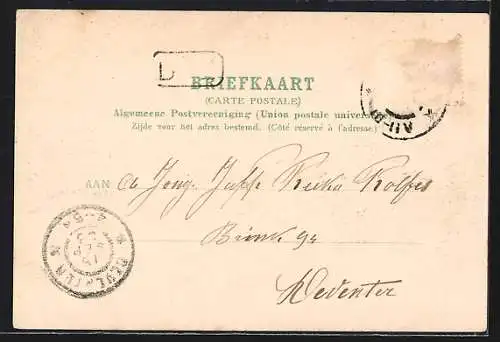 BRIEFKAART
(CARTE POSTALE)
Algemeene Postvereeniging (Union postale universe
Zijde voor het adres bestemd. (Côté réservé à l'adresse)
AAN de Jong. Juffr Reika Rolfes
Brink 94
Deventer
DEVENTER
4-5